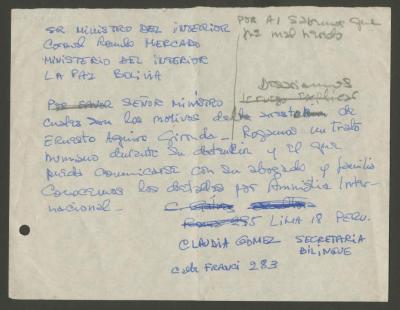 SR MINISTRO DEL INTERIOR
Coronel Romulo MERCADO
MINISTERIO DEL INTERIOR
LA PAZ BOLIVIA
POR AI Sabemos que
fue mal herido
Desearíamos
Por favor SEÑOR MINISTRO
Cuales son los motivos de la arrestación de
Ernesto Aguirre Gironda. Rogamos un trato
humano durante su detención y el que
pueda comunicarse con su abogado y familia
Conocemos los detalles por Amnistía Inter-
nacional -
295 LIMA 18 PERU.
CLAUDIA GOMEZ SECRETARIA
BILINGUE
Calle FRANCI 283